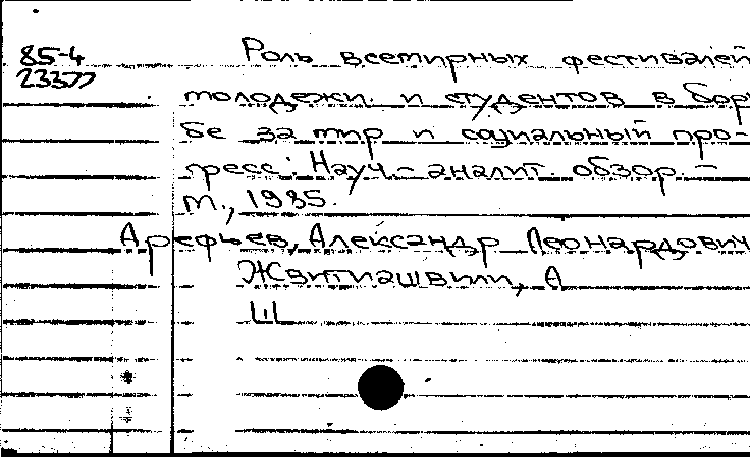 85-4
23377
Роль всемирных фестивалей
молодежи и студентов в борь
бе за мир и социальный про-
гресс: Науч.-аналит. обзор. -
М., 1985.
Арефьев, Александр Леонардович
Жвитиашвили, А
Ш